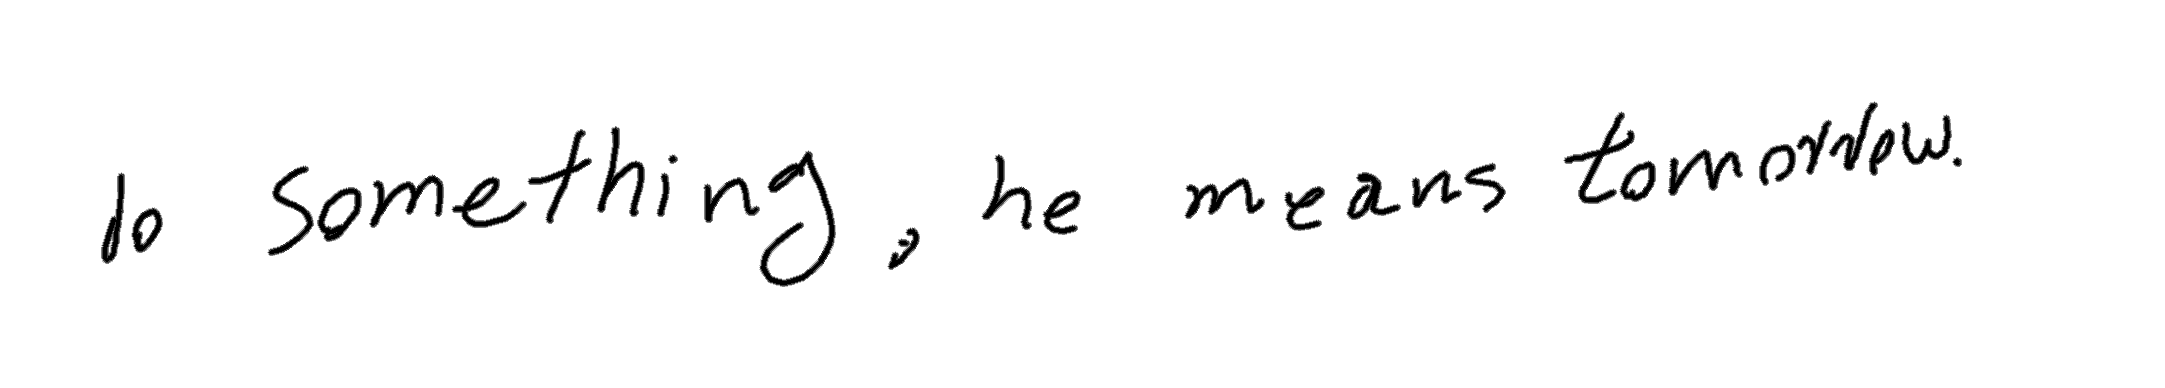 do something, he means tomorrow.